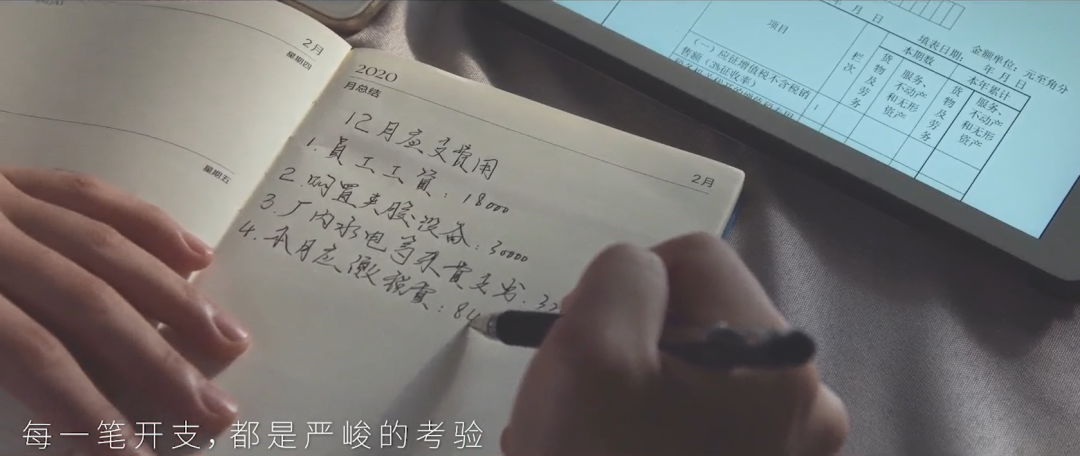 2月
星期四
星期五
2020
月总结
2月
12月应交费用
1.员工工资：18000
2.购置夹胶设备：30000
3.厂内水电等杂费支出：32
4.本月应缴税费：84
年 月 日
填表日期： 年 月 日
金额单位：元至角分
项目
栏次
本期数
本年累计
货物及劳务
服务、不动产和无形资产
货物及劳务
服务、不动产和无形资产
（一）应征增值税不含税销
售额（3%征收率）
1
每一笔开支，都是严峻的考验